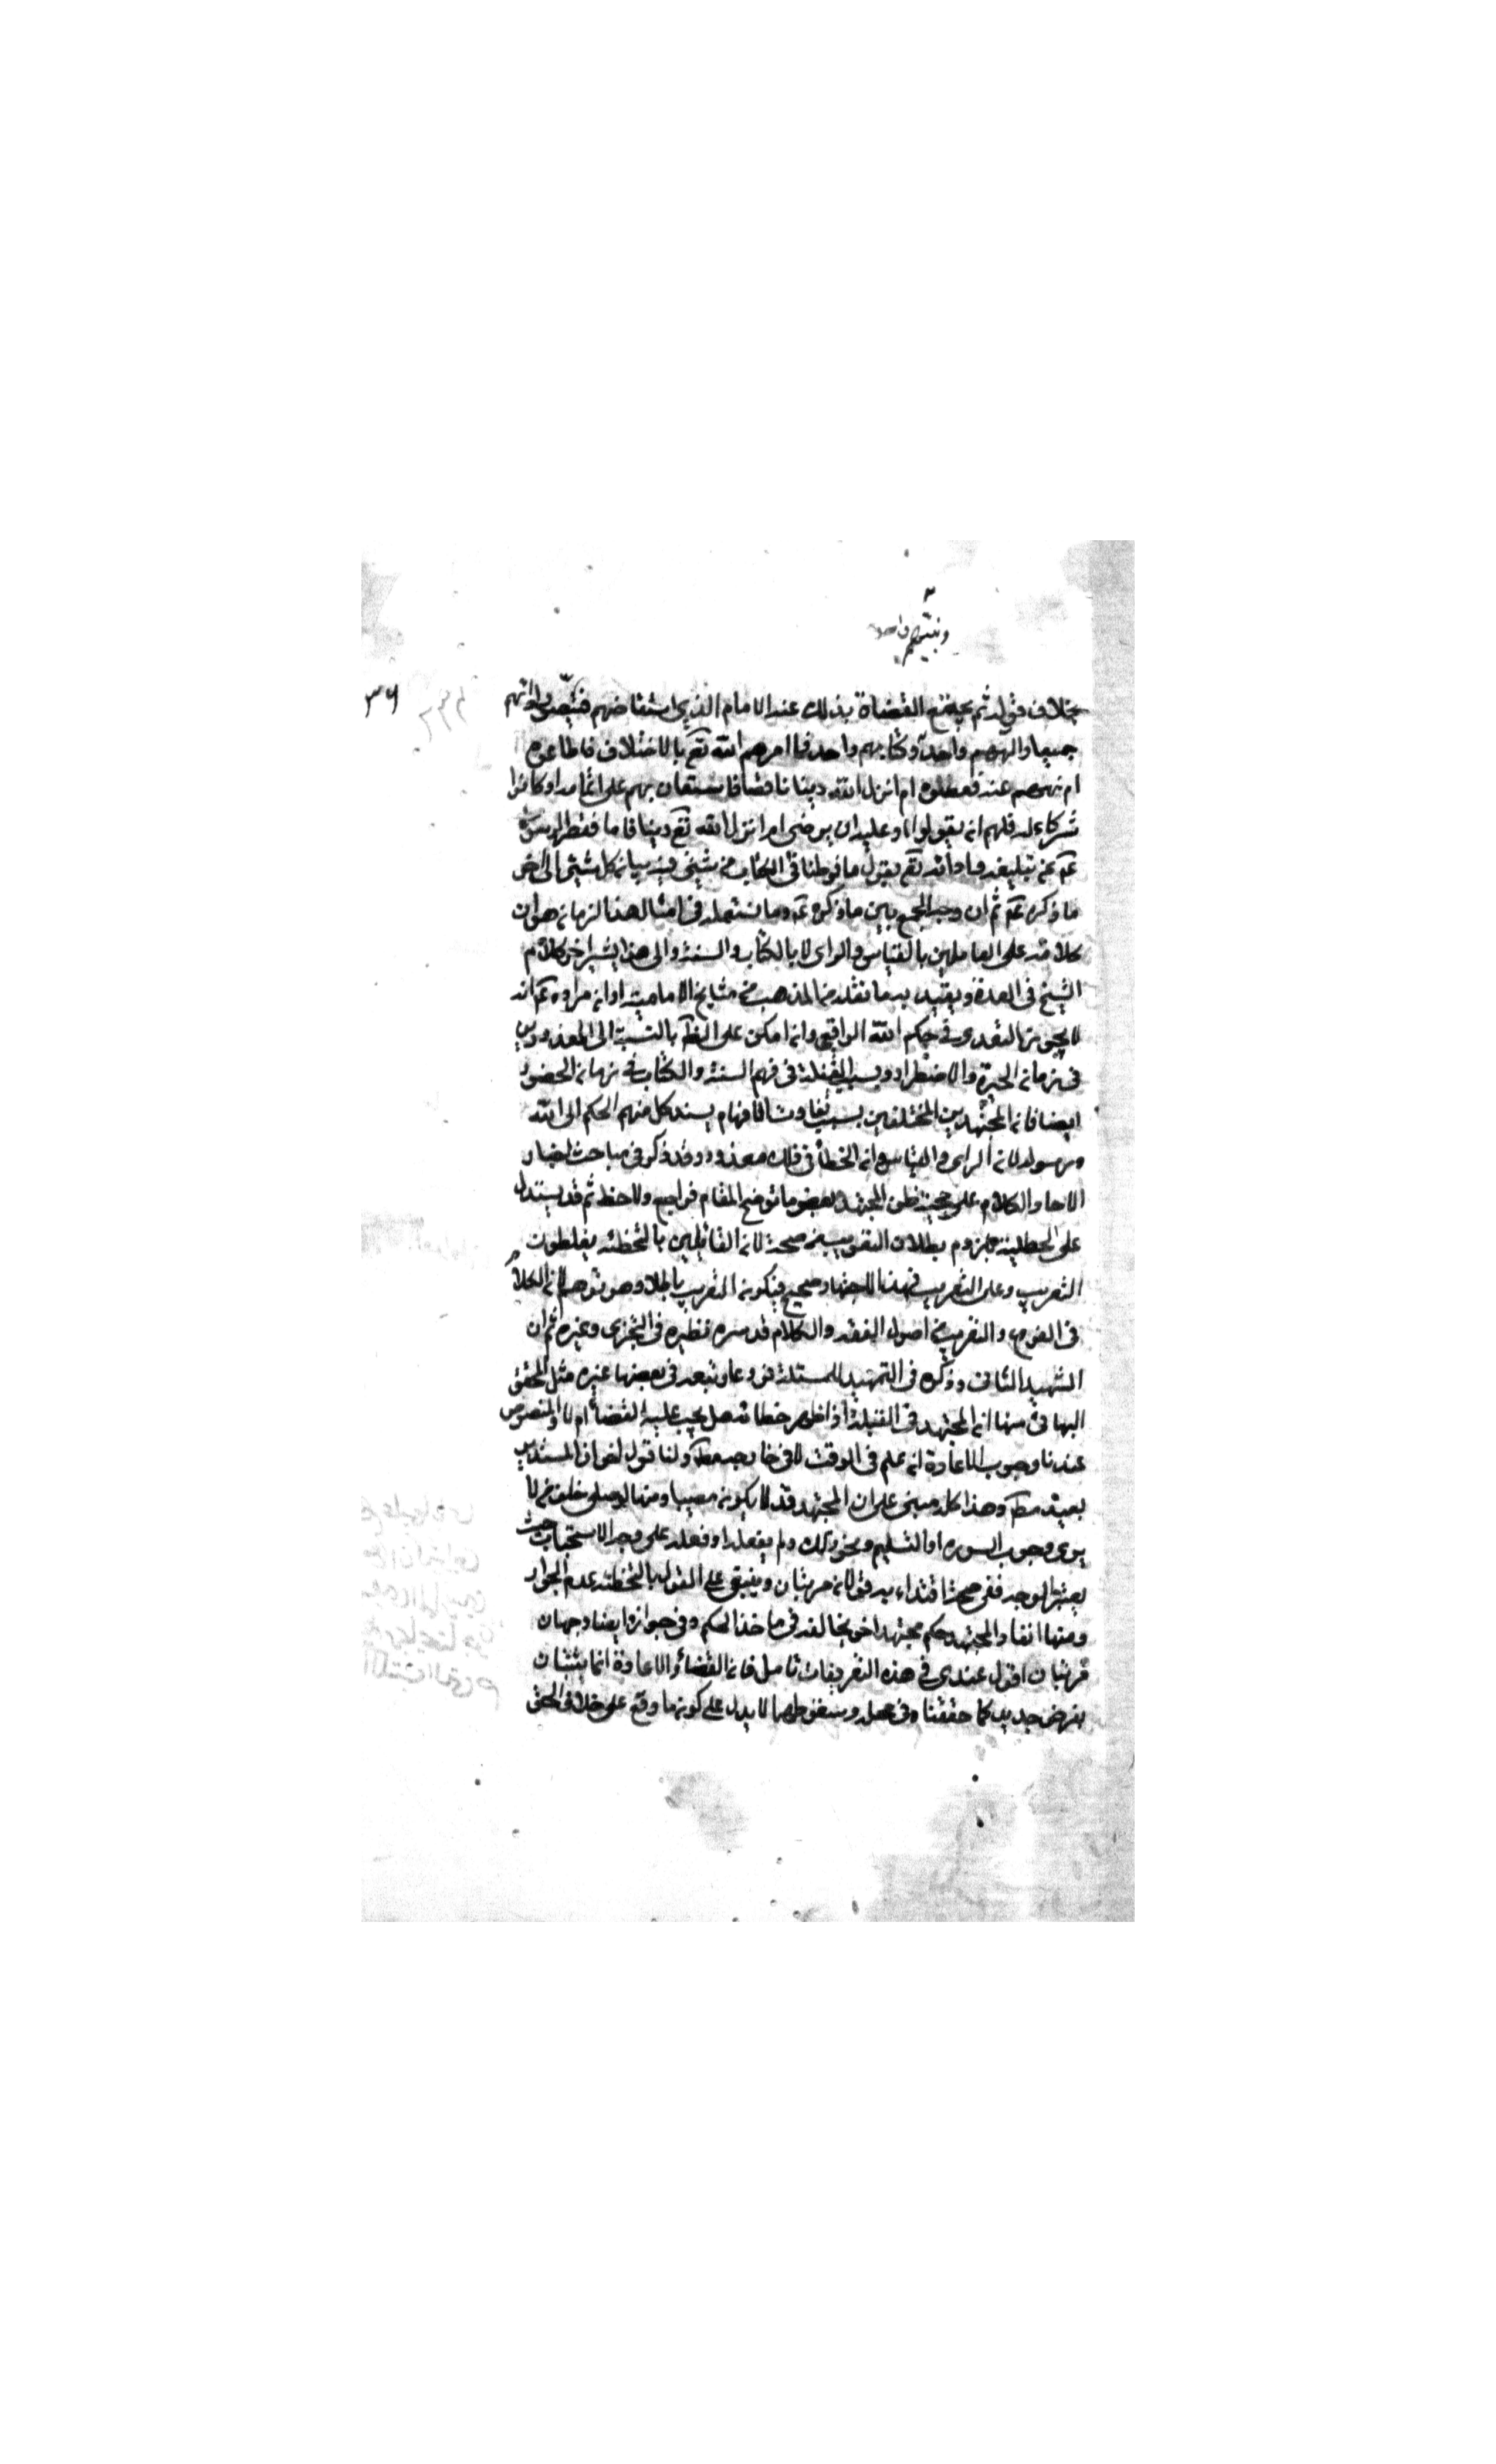 ونبيهم واحد
بخلاف قوله ثم يجتمع القضاة بذلك عند الامام الذي استقضاهم فيصوب ارائهم
جميعا والههم واحد وكتابهم واحد فامرهم الله تع بالاختلاف فاطاعوه
ام نهاهم عنه فعصوه ام انزل الله دينا ناقصا فاستعان بهم على اتمامه ام كانوا
شركاء له فلهم ان يقولوا وعليه ان يرضى ام انزل الله تع دينا تاما فقصر الرسول
عن تبليغه وادائه والله تع يقول ما فرطنا في الكتاب من شيئ وفيه تبيان كل شيئ الى اخر
ما ذكره ثم ان وجه الجمع بين ما ذكره وما نستعمله في امثال هذا الزمان هو ان
كلامه على العاملين بالقياس والراى لا بالكتاب والسنة والى هذا يشير اخر كلام
الشيخ في العدة ويقيد به ما نقله من المذهب من مشايخ الامامية او ان مراده انه
لا يجوز التعدد في حكم الله الواقعي وان امكن على الظ بالنسبة الى المعذورين
في زمان الحيرة والاضطرار وبسبب الغفلة في فهم السنة والكتاب في زمان الحضور
ايضا فان المجتهدين المختلفين بسبب تفاوت الافهام يسند كل منهم الحكم الى الله
ورسوله لا الى الراى والقياس وان الخطأ في ذلك معذور وقد ذكر في مباحث اخبار
الاحاد والكلام على حجية ظن المجتهد بعض ما توضح المقام فراجع ولاحظ ثم قد يستدل
على التخطئة بلزوم بطلان التصويب من صحته لان القائلين بالتخطئة يغلطون
التصويب وعلى التصويب فهذا الاجتهاد صحيح فيكون التصويب باطلا وهو توهم لان الكلام
في الفروع والتصويب من اصول الفقه والكلام قد مر نظيره في التجزى وغيره ثم ان
الشهيد الثاني ره ذكر في التمهيد للمسئلة فروعا وتبعه في بعضها غيره مثل المحقق
البهائي منها ان المجتهد في القبلة اذا ظهر خطائه هل يجب عليه القضاء ام لا والمنصوص
عندنا وجوب الاعادة ان علم في الوقت لا في خارجه مط ولنا قول اخر ان المستدبر
يعيد مط وهذا كله مبنى على ان المجتهد قد لا يكون مصيبا ومنها لو صلى خلف من لا
يرى وجوب السوره او التسليم ونحو ذلك ولم يفعله او فعله على وجه الاستحباب حيث
يعتبر الوجه ففي صحة اقتداء به قولان مرتبان وينبغي على القول بالتخطئة عدم الجواز
ومنها انفاذ المجتهد حكم مجتهد اخر يخالفه في ماخذ الحكم وفي جوازه ايضا وجهان
مرتبان اقول عندى في هذه التفريعات تامل فان القضاء والاعادة انما يثبتان
بفرض جديد كما حققنا في محله وسقوطهما لا يدل على كون ما وقع على خلاف الحق
٣٦